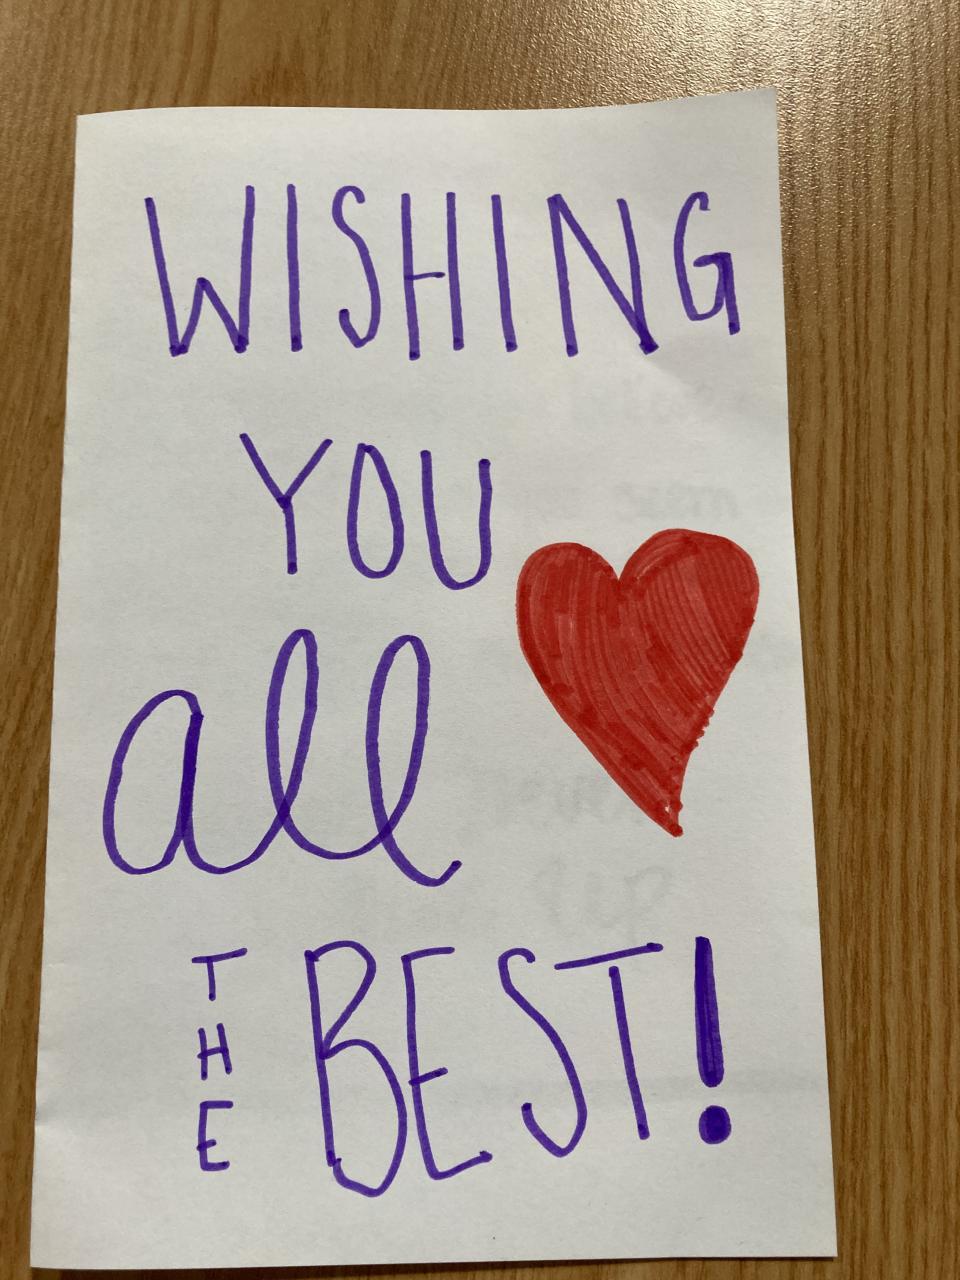 WISHING
YOU
all
THE BEST!